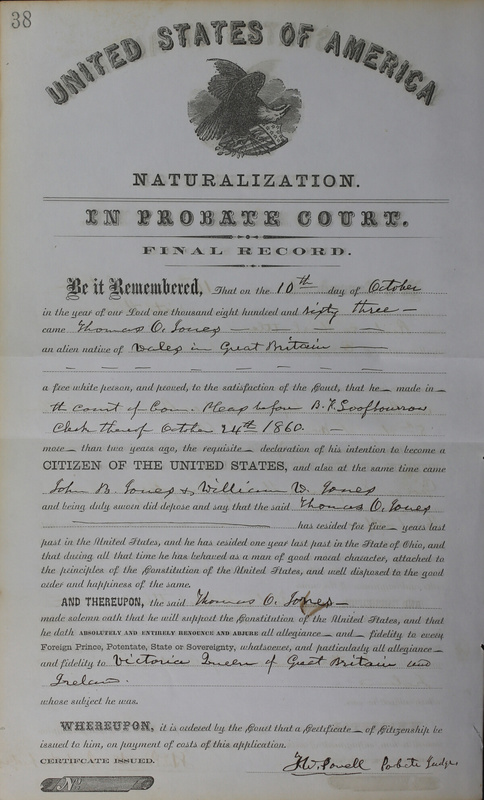 38
UNITED STATES OF AMERICA
NATURALIZATION.
IN PROBATE COURT.
FINAL RECORD.
Be it Remembered, That on the 10th day of October
in the year of our Lord one thousand eight hundred and sixty three
came Thomas O. Jones
an alien native of Wales in Great Britain
a free white person, and proved, to the satisfaction of the Court, that he made in
th court of Com. Pleas before B. F.
Clerk thereof October 24th 1860.
more than two years ago, the requisite declaration of his intention to become a
CITIZEN OF THE UNITED STATES, and also at the same time came
John B. Jones & William W. Jones
and being duly sworn did depose and say that the said Thomas O. Jones
has resided for five years last
past in the United States, and he has resided one year last past in the State of Ohio, and
that during all that time he has behaved as a man of good moral character, attached to
the principles of the Constitution of the United States, and well disposed to the good
order and happiness of the same.
AND THEREUPON, the said Thomas O. Jones
made solemn oath that he will support the Constitution of the United States, and that
he doth ABSOLUTELY AND ENTIRELY RENOUNCE AND ABJURE all allegiance and fidelity to every
Foreign Prince, Potentate, State or Sovereignty, whatsoever, and particularly all allegiance
and fidelity to Victoria Queen of Great Britain and
Ireland.
whose subject he was.
WHEREUPON, it is ordered by the Court that a Certificate of Citizenship be
issued to him, on payment of costs of this application.
CERTIFICATE ISSUED.
No
T. W. Powell Probate Judge